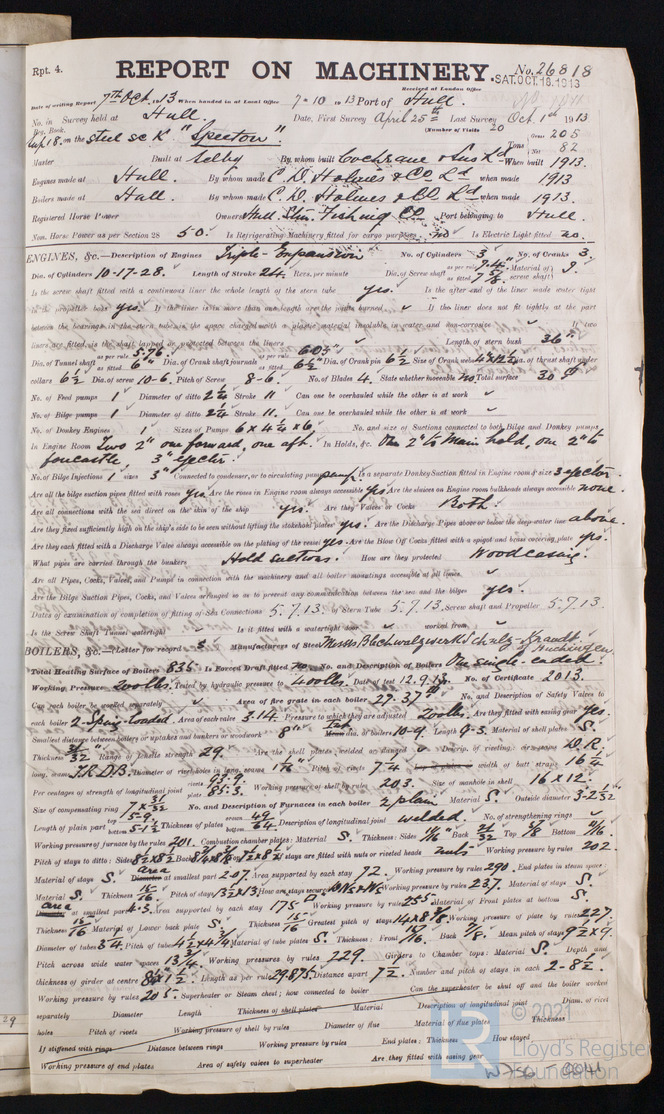 Rpt. 4.
REPORT ON MACHINERY.
No. 26818
SAT. OCT. 18. 1913
Received at London Office
Date of writing Report 7th Oct. 1913 When handed in at Local Office 7-10 1913 Port of Hull.
No. in Survey held at Hull. Date, First Survey April 25th Last Survey Oct. 1st 1913
Reg. Book. (Number of Visits 20
on the steel sc K "Speeton" Tons Gross 205 Net 82
Master Built at Selby By whom built Cochrane & Sons Ld When built 1913.
Engines made at Hull. By whom made C. D. Holmes & Co Ld when made 1913
Boilers made at Hull. By whom made C. D. Holmes & Co Ld when made 1913.
Registered Horse Power Owners Hull Stm. Fishing Co Port belonging to Hull.
Nom. Horse Power as per Section 28 50. Is Refrigerating Machinery fitted for cargo purposes no Is Electric Light fitted no.
ENGINES, &c.—Description of Engines Triple-Expansion No. of Cylinders 3 No. of Cranks 3
Dia. of Cylinders 10-17-28. Length of Stroke 24 Revs. per minute Dia. of Screw shaft as per rule as fitted Material of screw shaft
Is the screw shaft fitted with a continuous liner the whole length of the stern tube yes. Is the after end of the liner made water tight
in the propeller boss yes. If the liner is in more than one length are the joints burned If the liner does not fit tightly at the part
between the bearings in the stern tube, is the space charged with a plastic material insoluble in water and non-corrosive If two
liners are fitted, is the shaft lapped or protected between the liners Length of stern bush 36"
Dia. of Tunnel shaft as per rule 5.76 as fitted 6" Dia. of Crank shaft journals as per rule 6.05" as fitted 6½" Dia. of Crank pin 6½ Size of Crank webs Dia. of thrust shaft under
collars 6½ Dia. of screw 10-6. Pitch of Screw 8-6. No. of Blades 4. State whether moveable no Total surface 30
No. of Feed pumps 1 Diameter of ditto 2¼ Stroke 11 Can one be overhauled while the other is at work
No. of Bilge pumps 1 Diameter of ditto 2¼ Stroke 11. Can one be overhauled while the other is at work
No. of Donkey Engines 1 Sizes of Pumps 6 x 4¼ x 6 No. and size of Suctions connected to both Bilge and Donkey pumps
In Engine Room Two 2" one forward, one aft. In Holds, &c. One 2" to Main hold, one 2" to
forecastle, 3" ejector.
No. of Bilge Injections 1 sizes 3" Connected to condenser, or to circulating pump pump. Is a separate Donkey Suction fitted in Engine room & size 3" ejector.
Are all the bilge suction pipes fitted with roses yes. Are the roses in Engine room always accessible yes Are the sluices on Engine room bulkheads always accessible none.
Are all connections with the sea direct on the skin of the ship yes. Are they Valves or Cocks Both.
Are they fixed sufficiently high on the ship's side to be seen without lifting the stokehold plates yes. Are the Discharge Pipes above or below the deep water line above.
Are they each fitted with a Discharge Valve always accessible on the plating of the vessel yes. Are the Blow Off Cocks fitted with a spigot and brass covering plate yes.
What pipes are carried through the bunkers Hold suctions. How are they protected Wood casing.
Are all Pipes, Cocks, Valves, and Pumps in connection with the machinery and all boiler mountings accessible at all times
Are the Bilge Suction Pipes, Cocks, and Valves arranged so as to prevent any communication between the sea and the bilges yes.
Dates of examination of completion of fitting of Sea Connections 5.7.13. of Stern Tube 5.7.13. Screw shaft and Propeller 5.7.13.
Is the Screw Shaft Tunnel watertight Is it fitted with a watertight door worked from
BOILERS, &c.—(Letter for record S Manufacturers of Steel
Total Heating Surface of Boilers 835. Is Forced Draft fitted no. No. and Description of Boilers One single-ended.
Working Pressure 200 lbs. Tested by hydraulic pressure to 400 lbs. Date of test 12.9.13. No. of Certificate 2013.
Can each boiler be worked separately Area of fire grate in each boiler 27.37 No. and Description of Safety Valves to
each boiler 2-Spring-Loaded. Area of each valve 3.14. Pressure to which they are adjusted 200 lbs. Are they fitted with easing gear yes.
Smallest distance between boilers or uptakes and bunkers or woodwork 8" dia. of boilers 10-9. Length 9-3. Material of shell plates S.
Thickness Range of tensile strength 29. Are the shell plates welded or flanged Descrip. of riveting: cir. seams D.R.
long. seams T.R.D.B. Diameter of rivet holes in long. seams Pitch of rivets 7¼ width of butt straps 16¼
Per centages of strength of longitudinal joint rivets 93.9. plate 85.3. Working pressure of shell by rules 203. Size of manhole in shell 16 x 12.
Size of compensating ring No. and Description of Furnaces in each boiler 2 plain Material S. Outside diameter
Length of plain part top bottom Thickness of plates crown bottom Description of longitudinal joint welded. No. of strengthening rings
Working pressure of furnace by the rules 201. Combustion chamber plates: Material S. Thickness: Sides Back Top Bottom
Pitch of stays to ditto: Sides Back Top If stays are fitted with nuts or riveted heads nuts Working pressure by rules 202.
Material of stays S. area at smallest part 2.07. Area supported by each stay 72. Working pressure by rules 290. End plates in steam space:
Material S. Thickness Pitch of stays How are stays secured Working pressure by rules 237. Material of stays S.
area at smallest part 4.3. Area supported by each stay 175 Working pressure by rules 255 Material of Front plates at bottom S.
Thickness Material of Lower back plate S. Thickness Greatest pitch of stays Working pressure of plate by rules 227
Diameter of tubes 3¼. Pitch of tubes Material of tube plates S. Thickness: Front Back 7/8. Mean pitch of stays
Pitch across wide water spaces 13¾. Working pressures by rules 229. Girders to Chamber tops: Material S. Depth and
thickness of girder at centre Length as per rule 29.875 Distance apart 7½. Number and pitch of stays in each 2-8½.
Working pressure by rules 205. Superheater or Steam chest; how connected to boiler Can the superheater be shut off and the boiler worked
separately Diameter Length Thickness of shell plates Material Description of longitudinal joint Diam. of rivet
holes Pitch of rivets Working pressure of shell by rules Diameter of flue Material of flue plates Thickness
If stiffened with rings Distance between rings Working pressure by rules End plates: Thickness How stayed
Working pressure of end plates Area of safety valves to superheater Are they fitted with easing gear
© 2021
Lloyd's Register
Foundation